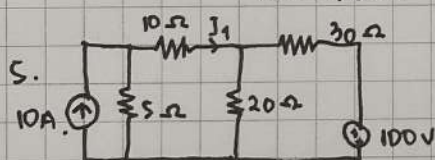 10Ω I₁ 30Ω
5.
10A. 5Ω 20Ω 100V